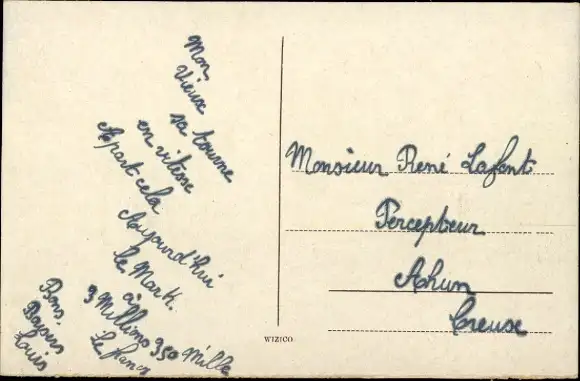 Mon
Vieux
sa tourne
en vitesse
Apart cela
Aujourd'hui
le Mark.
à
3 Millions 350 Mille
Le franc
Bons.
Baisers
Louis
Monsieur René Lafont
Percepteur
Ahun
Creuse
WIZICO